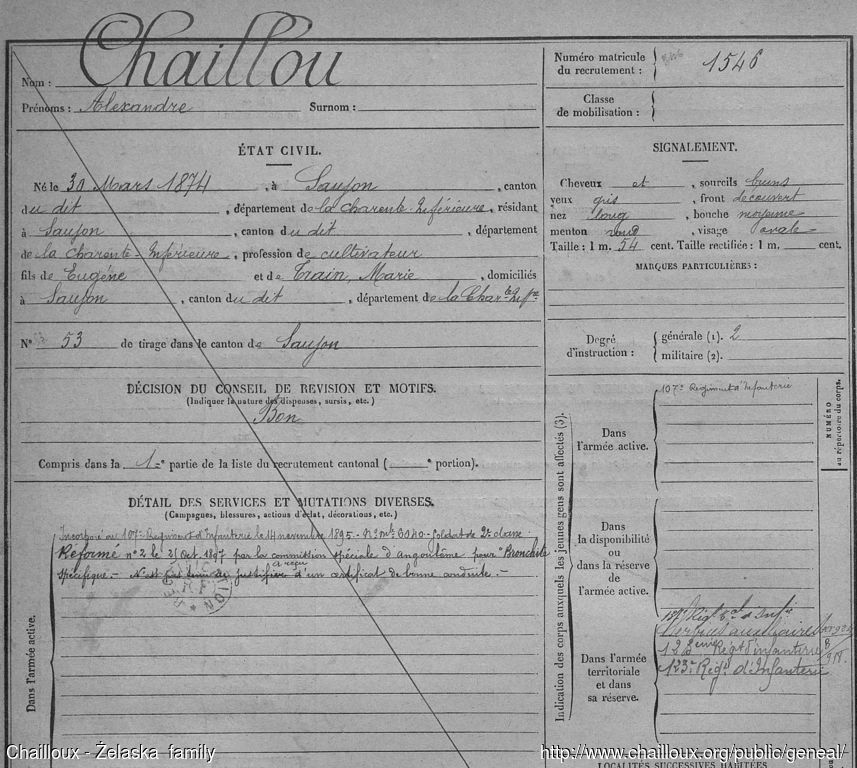 Nom : Chaillou
Prénoms : Alexandre Surnom :
Numéro matricule du recrutement : 1546
Classe de mobilisation :
ÉTAT CIVIL.
Né le 30 Mars 1874, à Saujon, canton
du dit, département de la Charente-Inférieure, résidant
à Saujon, canton du dit, département
de la Charente-Inférieure, profession de cultivateur
fils de Eugène et de Train, Marie, domiciliés
à Saujon, canton du dit, département de la Charte Infre
N° 53 de tirage dans le canton de Saujon
DÉCISION DU CONSEIL DE REVISION ET MOTIFS.
(Indiquer la nature des dispenses, sursis, etc.)
Bon
Compris dans la 1re partie de la liste du recrutement cantonal ( e portion).
DÉTAIL DES SERVICES ET MUTATIONS DIVERSES.
(Campagnes, blessures, actions d'éclat, décorations, etc.)
Dans l'armée active.
Incorporé au 107e Régiment d'Infanterie le 14 novembre 1895. N° mle 3040. Soldat de 2e classe
Réformé n° 2 le 21 Oct. 1897 par la commission spéciale d'angoulême pour "Bronchite
spécifique. - N'est pas tenu de justifier a reçu d'un certificat de bonne conduite. -
SIGNALEMENT.
Cheveux et, sourcils bruns
yeux gris, front découvert
nez long, bouche moyenne
menton rond, visage ovale
Taille : 1 m. 54 cent. Taille rectifiée : 1 m. cent.
MARQUES PARTICULIÈRES :
Degré d'instruction : générale (1). 2
militaire (2).
Indication des corps auxquels les jeunes gens sont affectés (3).
NUMÉRO
au répertoire du corps.
Dans l'armée active.
107e Régiment d'Infanterie
Dans la disponibilité ou dans la réserve de l'armée active.
Dans l'armée territoriale et dans sa réserve.
Services auxiliaires
123e Régt d'Infanterie
LOCALITÉS SUCCESSIVES HABITÉES
Chailloux - Żelaska family
http://www.chailloux.org/public/geneal/